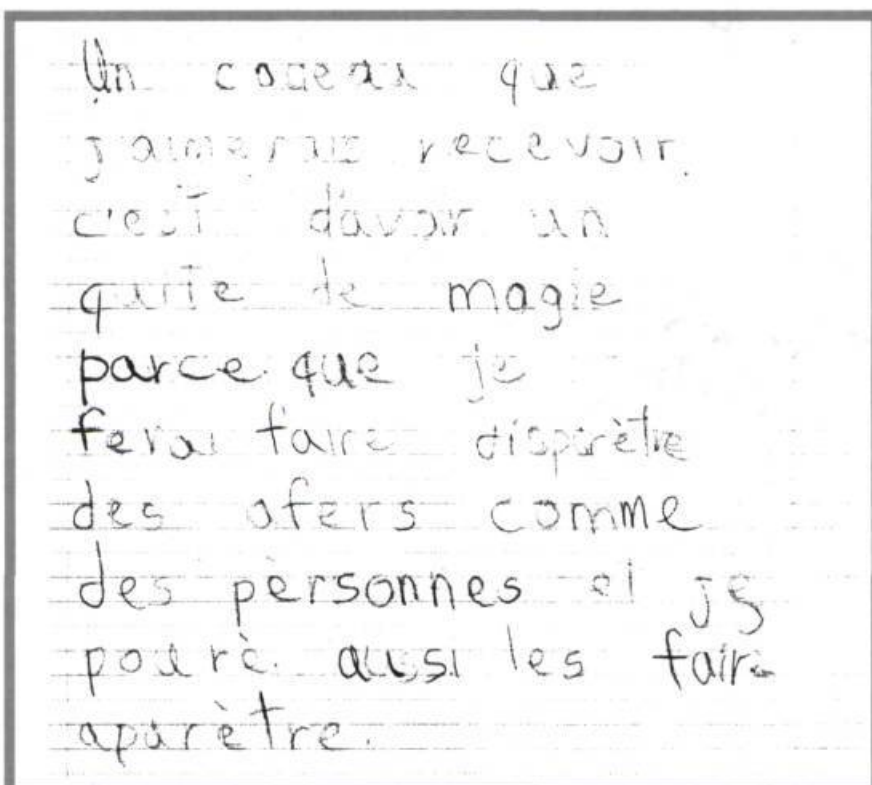 Un cadeau que
j'aimerais recevoir
c'est d'avoir un
quite de magie
parce que je
ferai faire disparètre
des afers comme
des pèrsonnes et je
pourè ausi les faire
aparètre.